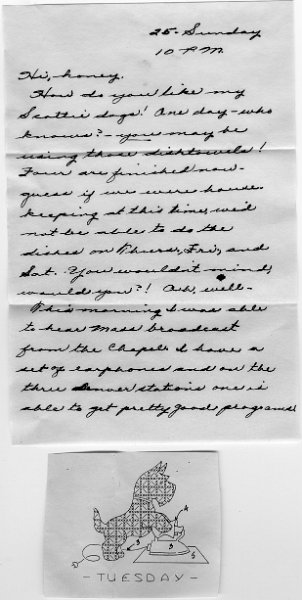 25 - Sunday
10 P.M.
Hi, honey.
How do you like my
Scottie dogs! One day - who
knows? - you may be
using those dishtowels!
Four are finished now -
guess if we were house-
keeping at this time, we'd
not be able to do the
dishes on Thurs, Fri, and
Sat. You wouldn't mind,
would you?! Ah, well -
This morning I was able
to hear Mass broadcast
from the Chapel. I have a
set of earphones and on the
three Denver stations one is
able to get pretty good programs!
- TUESDAY -
4
3
5